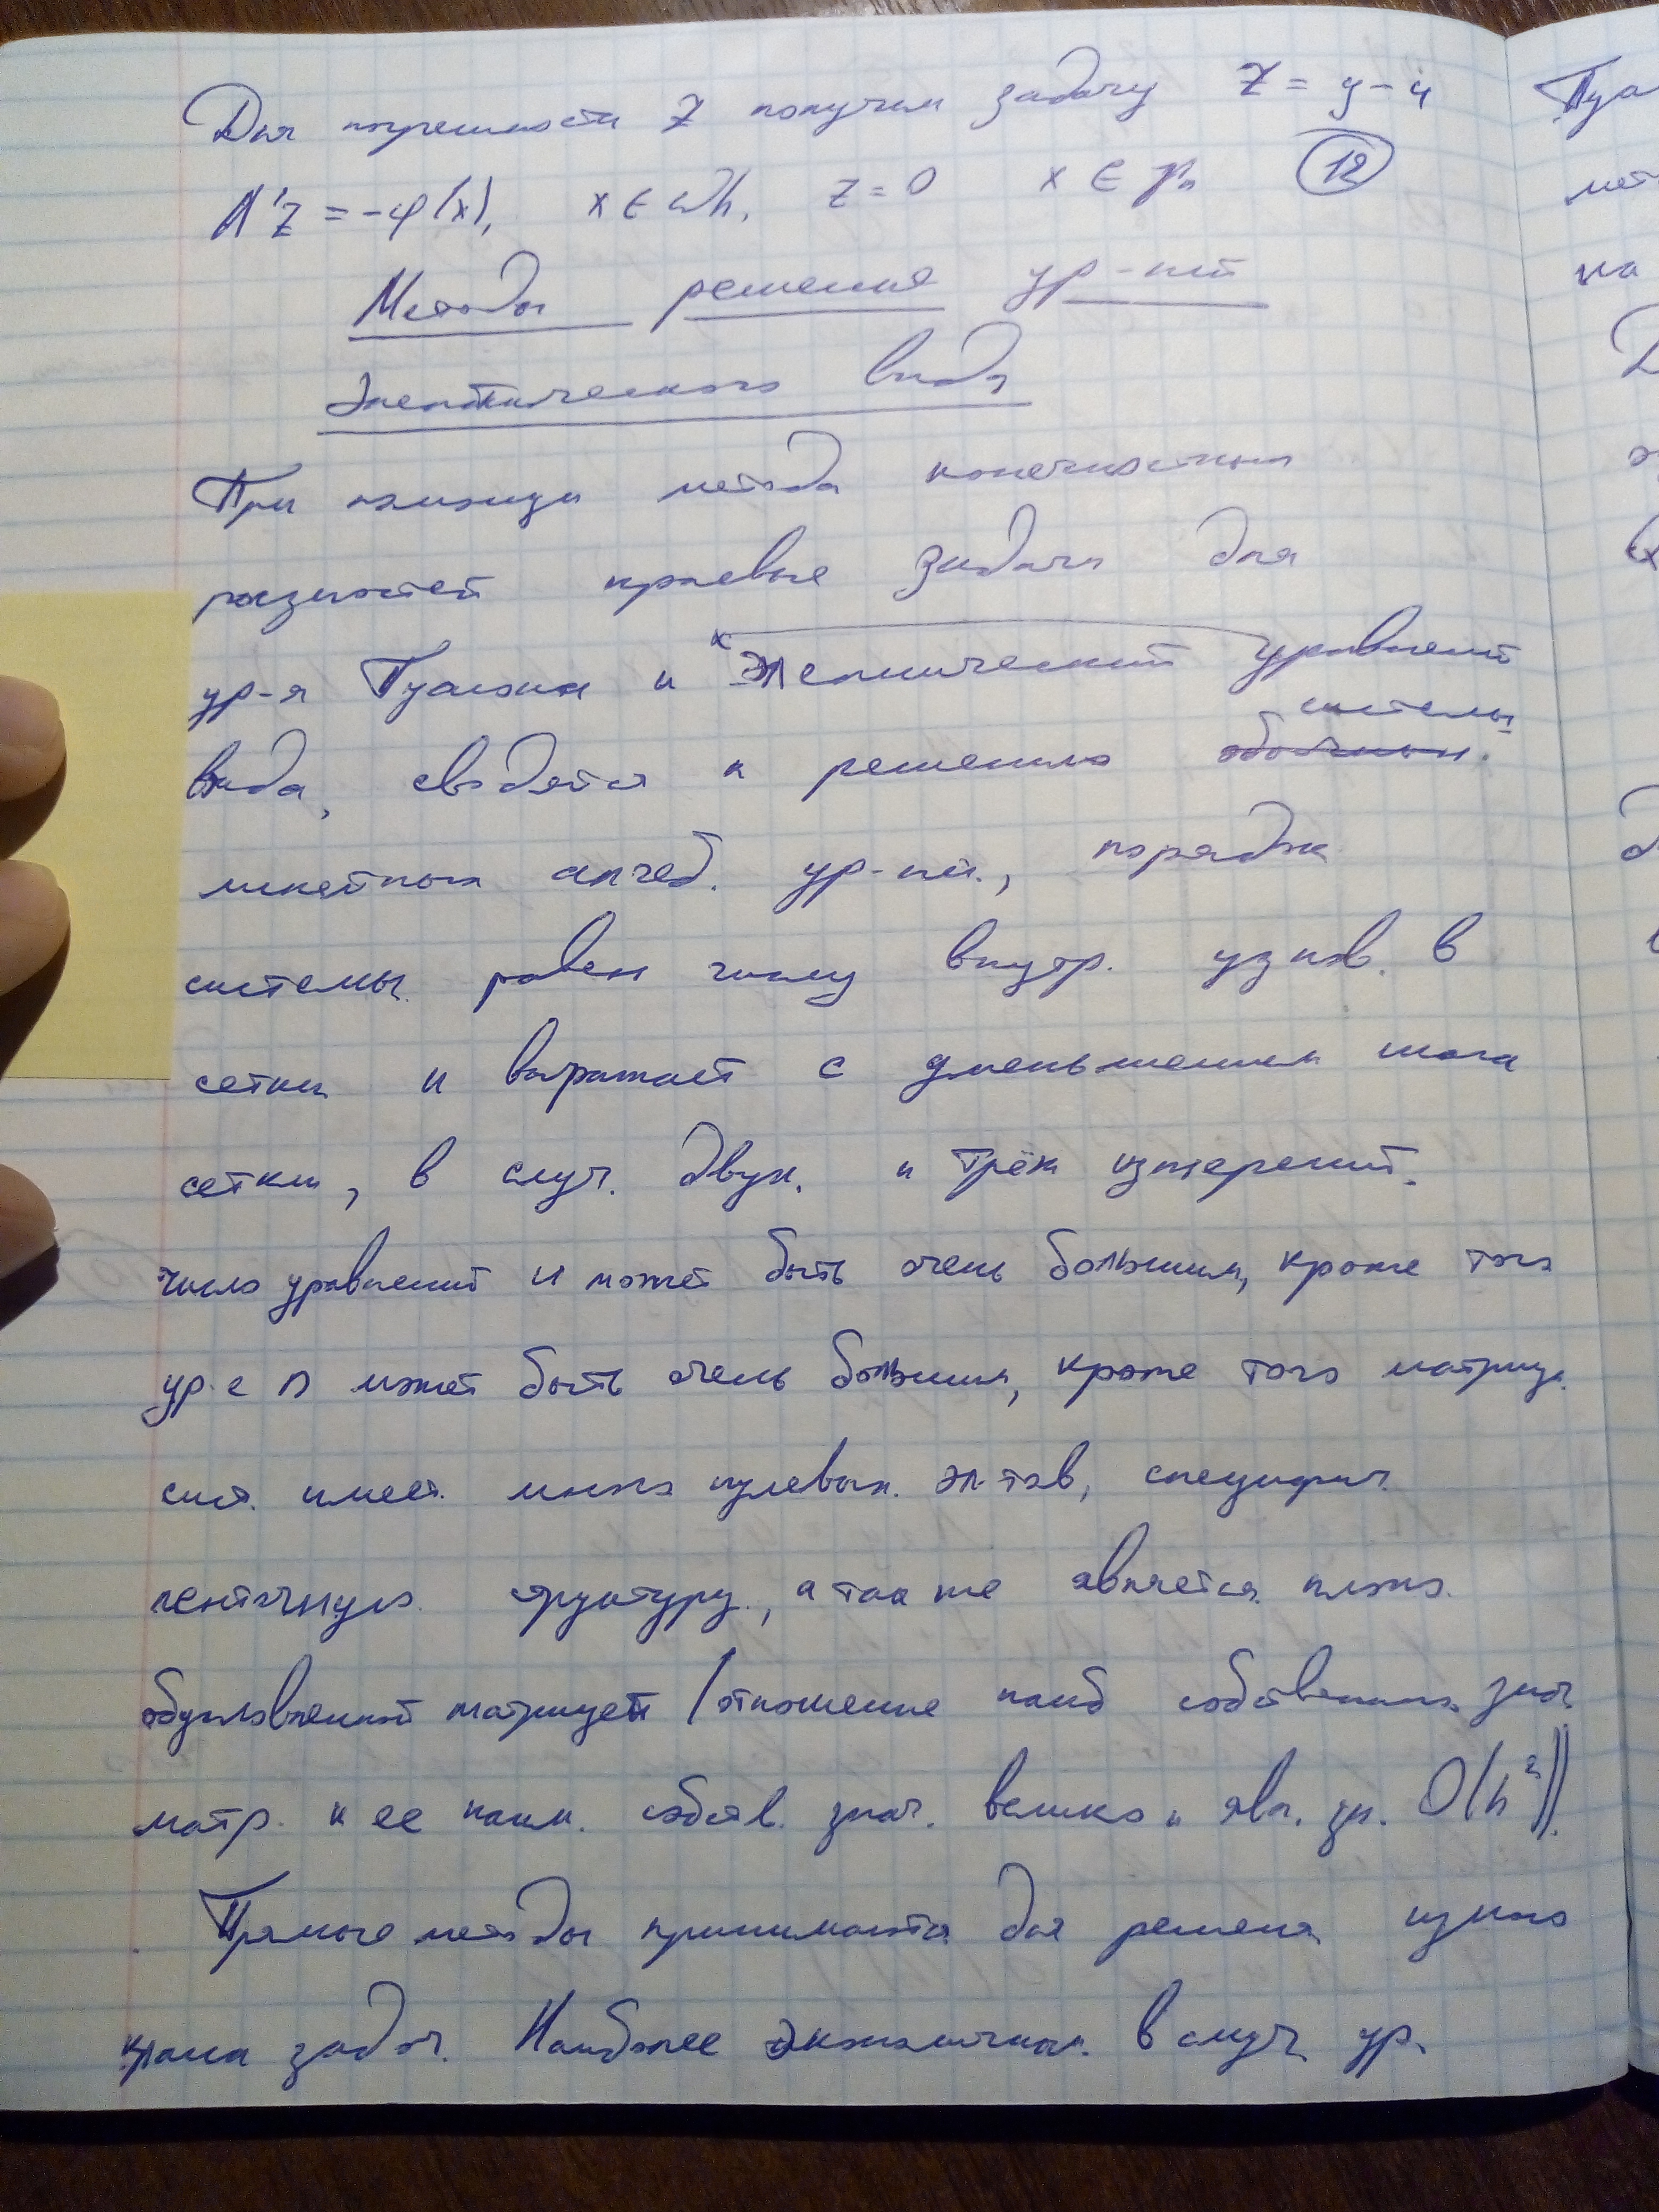 Для погрешности z получим задачу z = y - u
Λ'z = -φ(x), x ∈ ωh, z = 0 x ∈ γh (12)
Методы решения ур-ний
эллиптического вида
При помощи метода конечных
разностей краевые задачи для
ур-я Пуассона и эллиптический уравнений
системы
вида, сводятся к решению
линейных алгеб. ур-ний, порядок
системы равен числу внутр. узлов в
сетки и возрастает с уменьшением шага
сетки, в случ. двух. и трёх измерений.
число уравнений и может быть очень большим, кроме того
ур-е n может быть очень большим, кроме того матриц.
сист. имеет много нулевых эл-тов, специфич.
ленточную структуру, а так же является плохо
обусловленной матрицей (отношение наиб собственных знач.
матр. к ее наим. собств. знач. велико и явл. O(h²)).
Прямые методы принимаются для решения узкого
задач. Наиболее экономичны в случ ур.
Пуа
мет
на